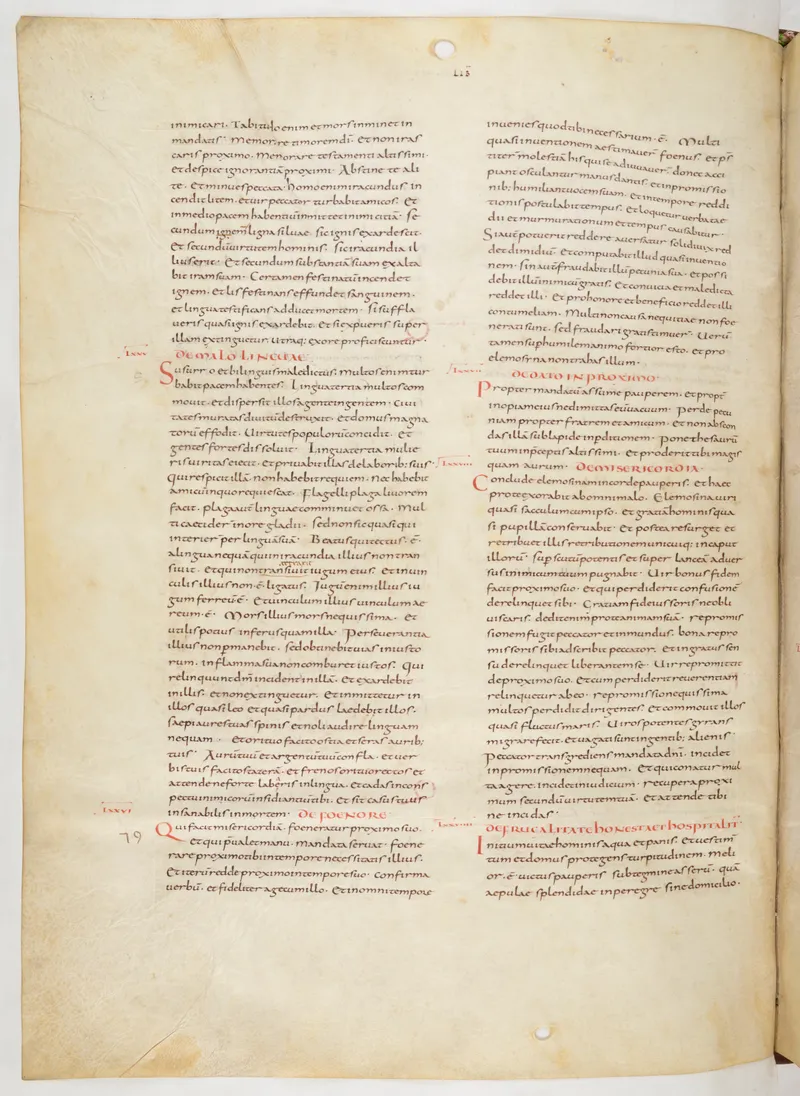 LIB
inimicari. Tabitudo enim et mors inminet in
mandatis. Memorare timorem dī. et non iras
caris proximo. Memorare testamenti altissimi.
et despice ignorantiā proximi. Abstine te a li
te. et minues peccata. homo enim iracundus in
cendit litem. et uir peccator turbabit amicos. et
in medio pacem habentiū inmittet inimicitiā. Se
cundum enim ligna siluae. sic ignis exardescit.
et secundū uirtutem hominis. sic iracundia il
lius erit. et secundum substantiā suam exalta
bit iram suam. Certamen festinatū incendet
ignem. et lis festinans effundet sanguinem.
et lingua testificans adducet mortem. Si suffla
ueris quasi ignis exardebit. et si expueris super
illam extinguetur. utraq; ex ore proficiscuntur.
LXXV DE MALO LINGUAE
Susurro et bilinguis maledictus. multos enim tur
babit pacem habentes. Lingua tertia multos com
mouit. et dispersit illos a gente in gentem. Ciui
tates muratas diuitū destruxit. et domus magna
torū effodit. Uirtutes populorū concidit. et
gentes fortes dissoluit. Lingua tertia mulie
res uiritas eiecit. et priuabit illas de laborib; suis.
Qui respicit illā non habebit requiem. nec habebit
amicū in quo requiescat. Flagelli plaga liuorem
facit. plaga aut̄ linguae comminuet ossa. Mul
ti ceciderunt in ore gladii. sed non sic quasi qui
interier̄ per linguā suā. Beatus qui tectus. ē.
a lingua nequā qui in iracundia illius non tran
siuit. et qui non transiuit iugum eius. et in uin
culis illius non. ē. ligatus. Iugū enim illius iu
gum ferreū ē. et uinculum illius uinculum ae
reum. ē. Mors illius mors nequissima. et
utilis potius inferus quam illa. Perseuerantia
illius non ꝑmanebit. sed obtinebit uias iniusto
rum. in flamma sua non comburet iustos. Qui
relinquunt dm̄ incident in illā. et exardebit
in illis. et non extinguetur. et inmittetur in
illos quasi leo et quasi pardus laedebit illos.
saepi aures tuas spinis et noli audire linguam
nequam. et ori tuo facito ostia. et seras aurib;
tuis. Aurū tuū et argentū tuū confla. et uer
bis tuis facito staterā. et frenos ori tuo rectos. et
attende ne forte laberis in lingua. et cadas in cons
pectu inimicorū insidiantiū tibi. et sit casus tuus
LXXVI insanabilis in mortem. DE FOENORE
Qui facit misericordiā. foeneratur proximo suo.
et qui p̄ualet manu. mandata seruat. foene
rare proximo tibi in tempore necessitatis illius.
et iterū redde proximo in tempore suo. Confirma
uerbū. et fideliter age cum illo. et in omni tempore
inuenies quod tibi necessarium. ē. Multi
quasi inuentionem aestimauer̄ foenus. et p̄s
titer̄ molestiā his qui se adiuuauer̄. donec acci
piant osculantur manus dantis. et in promissio
nib; humiliant uocem suam. et in tempore reddi
tionis postulabit tempus. et loquetur uerba tae
dii et murmurationum et tempus causabitur.
Si aut̄ potuerit reddere aduersatur. solidi uix red
det dimidiū. et computabit illud quasi inuentio
nem. sin aut̄ fraudabit illū pecunia sua. et possi
debit illū inimicū gratis. et conuicia et maledicta
reddet illi. et pro honore et beneficio reddet illi
contumeliam. Multi non causa nequitiae non foe
nerati sunt. sed fraudari gratis timuer̄. Uerū
tamen sup humilem animo fortior esto. et pro
elemosyna non trahas illum.
LXXVII DE DATO IN PROXIMO
Propter mandatū assume pauperem. et propt̄
inopiam eius ne dimittas eū uacuum. Perde pecu
niam propter fratrem et amicum. et non abscon
das illā sub lapide in ꝑditionem. Pone thesaurū
tuum in p̄ceptis altissimi. et proderit tibi magis
LXXVIII quam aurum. DE MISERICORDIA
Conclude elemosinam in corde pauperis. et haec
pro te exorabit ab omni malo. Elemosina uiri
quasi sacculum cum ipso. et gratiā hominis qua
si pupillā conseruabit. et postea resurget et
retribuet illis retributionem unicuiq; in caput
illorū. sup scutū potentis et super lanceā aduer
sus inimicum tuum pugnabit. Uir bonus fidem
facit proximo suo. et qui perdiderit confusionē
derelinquet sibi. Gratiam fideiussoris ne obli
uiscaris. dedit enim pro te animam suā. repromis
sionem fugit peccator et inmundus. bona repro
missoris sibi adscribit peccator. et ingratus sen
su derelinquet liberantem se. Uir repromittit
de proximo suo. et cum perdiderit reuerentiam
relinquetur ab eo. repromissio nequissima
multos perdidit dirigentes. et commouit illos
quasi fluctus maris. Uiros potentes gyrans
migrare fecit. et uagati sunt in gentib; alienis.
Peccator transgrediens mandata dn̄i. incidet
in promissionem nequam. et qui conatur mul
ta agere. incidet in iudicium. recupera proxi
mum secundū uirtutem tuā. et attende tibi
ne incidas.
LXXVIIII DE FRUGALITATE HONESTA ET HOSPITALIT
Initium uitae hominis aqua et panis. et uestim̄
tum et domus protegens turpitudinem. Meli
or. ē. uictus pauperis sub tegmine asserū. quā
aepulae splendidae in peregre sine domicilio.
79